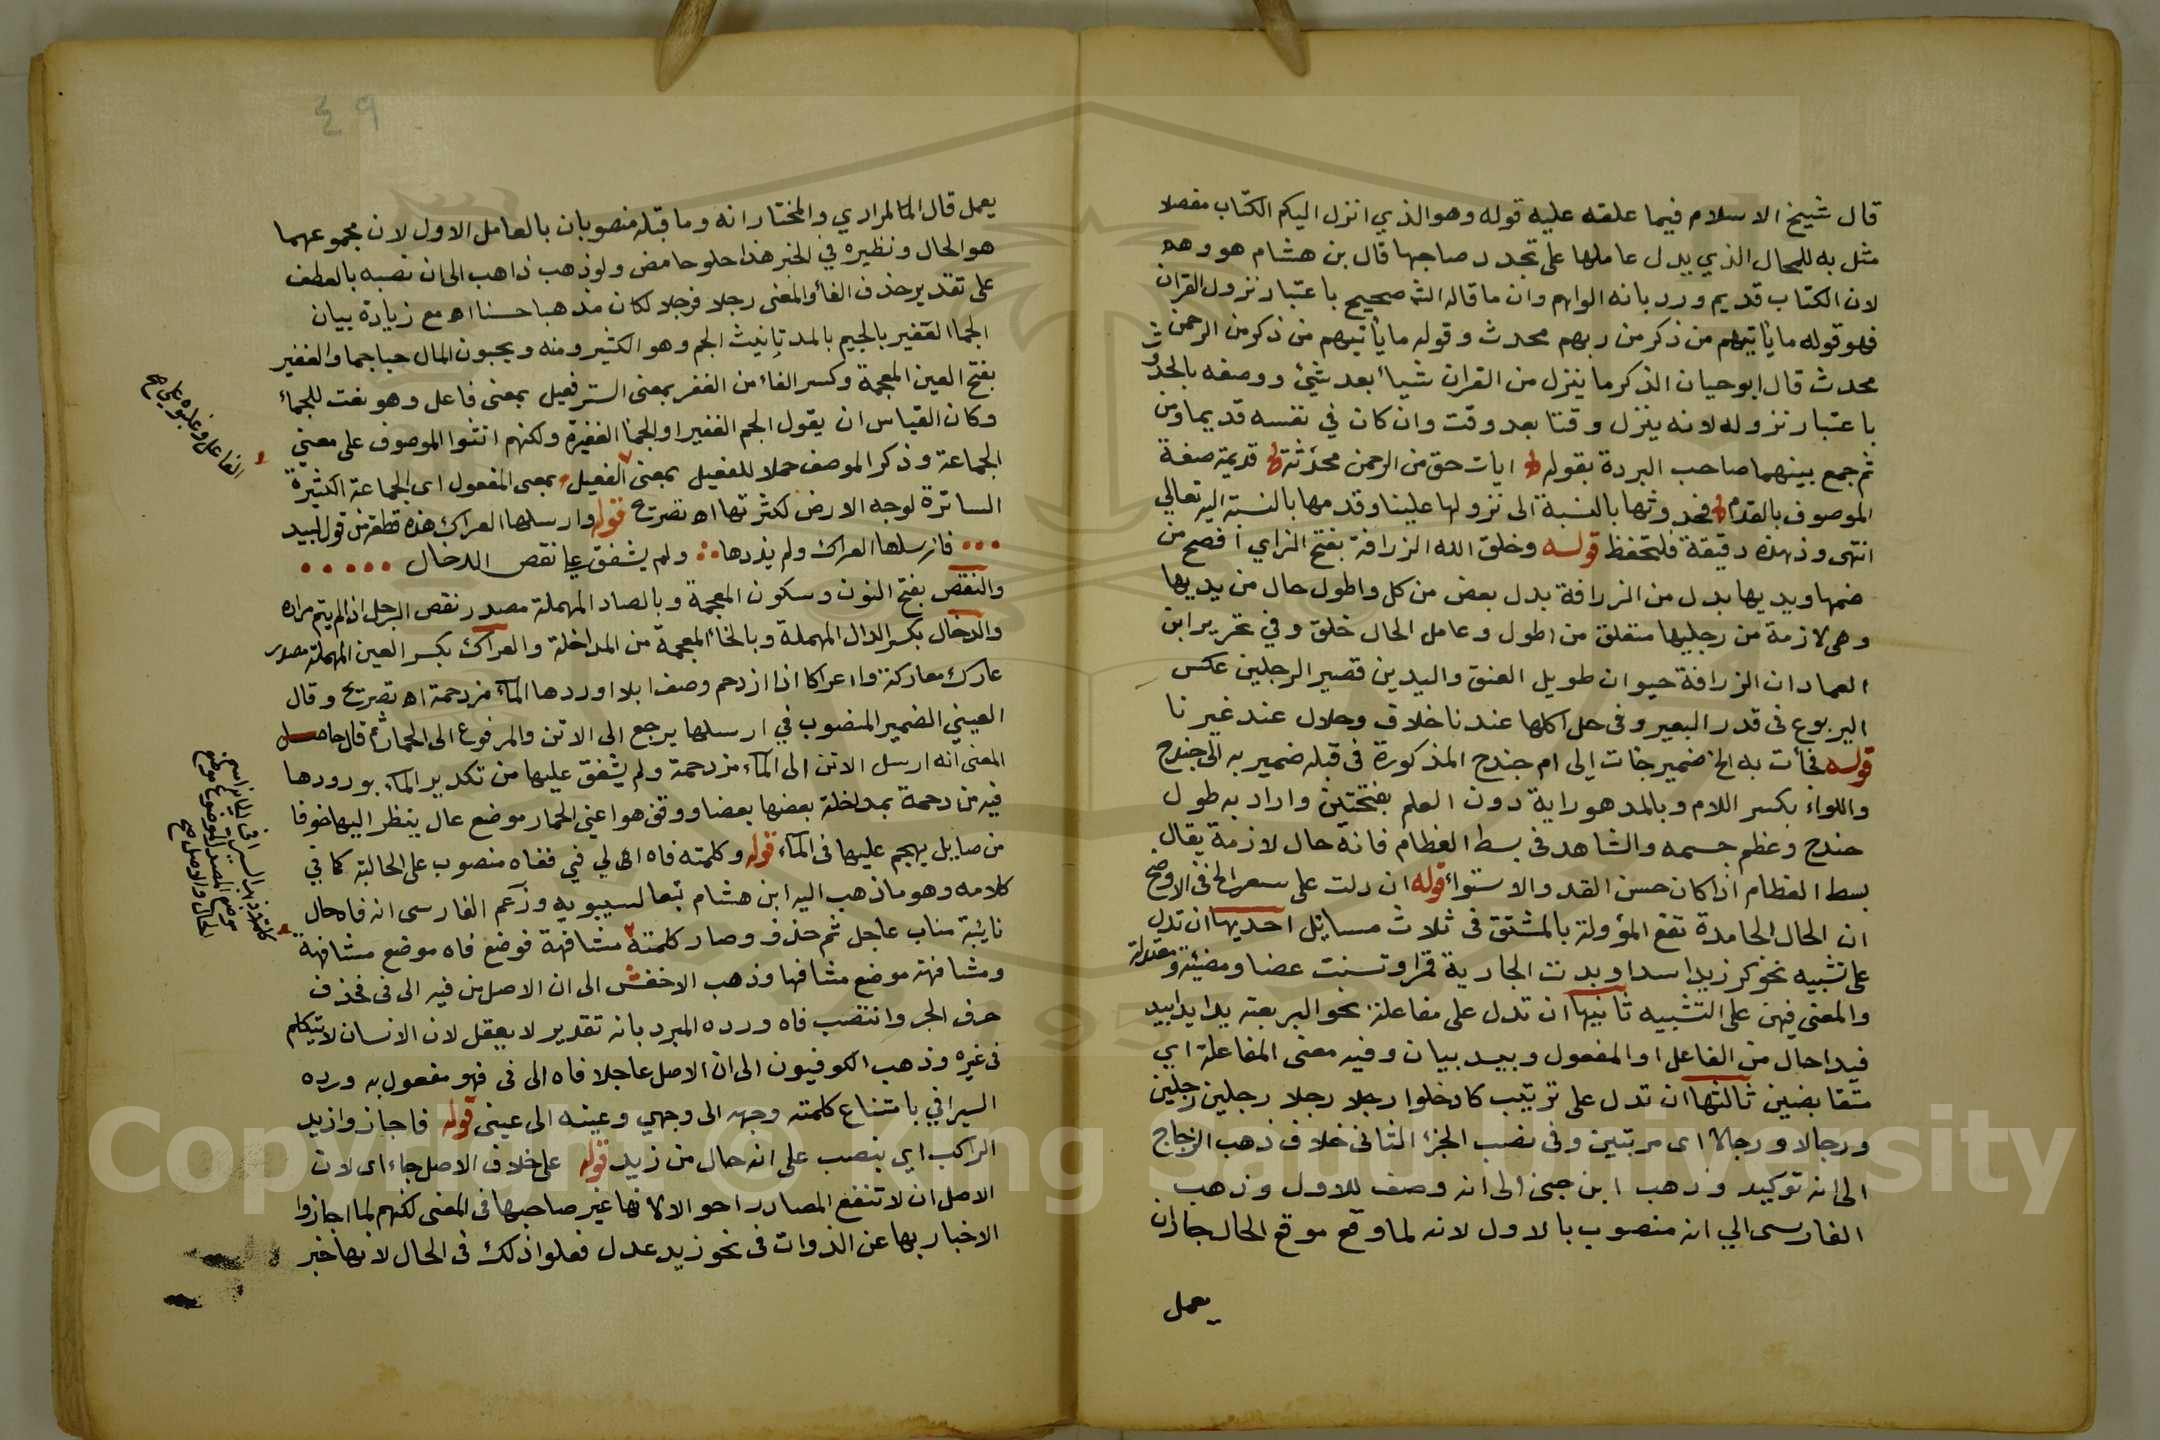 قال شيخ الاسلام فيما علقه عليه قوله وهو الذي انزل اليكم الكتاب مفصلا
مثل به للحال الذي يدل عاملها على تجدد صاحبها قال بن هشام هو وهم
لان الكتاب قديم ورد بانه الواهم وان ما قاله الشم صحيح باعتبار نزول القران
فهو قوله ما يأتيهم من ذكر من ربهم محدث وقوله ما يأتيهم من ذكر من الرحمن
محدث قال ابو حيان الذكر ما ينزل من القران شيأ بعد شئ ووصفه بالحدوث
باعتبار نزوله لانه ينزل وقتا بعد وقت وان كان في نفسه قديما ومن
ثم جمع بينهما صاحب البردة بقوله ايات حق من الرحمن محدثة قديمة صفة
الموصوف بالقدم فحدوثها بالنسبة الى نزولها علينا وقدمها بالنسبة اليه تعالي
انتهى وذهذه دقيقة فلتحفظ قوله وخلق الله الزرافة بفتح الزاي افصح من
ضمها ويديها بدل من الزرافة بدل بعض من كل واطول حال من يديها
وهي لازمة من رجليها متعلق من اطول وعامل الحال خلق وفي تحرير ابن
العماد ان الزرافة حيوان طويل العنق واليدين قصير الرجلين عكس
اليربوع في قدر البعير وفي حل اكلها عندنا خلاف وحلال عند غيرنا
قوله فجأت به الخ ضمير جأت إلى ام جندح المذكورة في قبله ضمير به الى جندح
واللواء بكسر اللام وبالمد هو راية دون العلم بفتحتين واراد به طول
جندح وعظم جسمه والشاهد في بسط العظام فانه حال لازمة يقال
بسط العظام اذا كان حسن القد والاستواء قوله ان دلت على سعر الخ في الاوضح
ان الحال الجامدة تقع المؤولة بالمشتق في ثلاث مسايل احديها ان تدل
على تشبيه نحو كر زيد اسدا وبدت الجارية قمرا وتسنت غصنا ومضيئة ومعتدلة
والمعنى فيهن على التشبيه ثانيها ان تدل على مفاعلة نحو البر بعته يدا بيد ابيد
فيدا حال من الفاعل او المفعول وبيد بيان وفيه معنى المفاعلة اي
متقابضين ثالثها ان تدل على ترتيب كادخلوا رجلا رجلا رجلين رجلين
ورجالا ورجالا اى مرتبين وفي نصب الجزء الثانى خلاف ذهب الزجاج
الى انه توكيد وذهب ابن جنى الى انه وصف للاول وذهب
الفارسى الي انه منصوب بالاول لانه لما وقع موقع الحال جاز ان
يعمل
٤٩
يعمل قال المرادي والمختار انه وما قبله منصوبان بالعامل الاول لان مجموعهما
هو الحال ونظيره في الخبر هذا حلو حامض ولو ذهب ذاهب الى ان نصبه بالعطف
على تقدير حذف الفأ والمعنى رجلا فرجلا لكان مذهبا حسنا اه مع زيادة بيان
الجما الغفير بالجيم بالمد تانيث الجم وهو الكثير ومنه ويحبون المال حبا جما والغفير
بفتح الغين المعجمة وكسر الفاء من الغفر بمعنى الستر فعيل بمعنى فاعل وهو نعت للجماء
وكان القياس ان يقول الجم الغفير او الجما الغفيرة ولكنهم انثوا الموصوف على معني
الجماعة وذكر الموصف حملا للفعيل بمعنى الفعيل بمعى المفعول اى الجماعة الكثيرة
الساترة لوجه الارض لكثرتها اه تصريح قوله وارسلها العراك هذه قطعة من قول لبيد
فارسلها العراك ولم يذدها ولم يشفق على نغص الدخال
والنغص بفتح النون وسكون المعجمة وبالصاد المهملة مصدر نغص الرجل اذا لم يتم مراده
والدخال بكسر الدال المهملة وبالخاء المعجمة من المداخلة والعراك بكسر العين المهملة مصدر
عارك معاركة وا عراكا اذا ازدحم وصف ابلا اوردها الماء مزدحمة اه تصريح وقال
العيني الضمير المنصوب في ارسلها يرجع الى الاتن والمرفوع الى الحمار ثم قال حاصل
المعنى انه ارسل الاتن الى الماء مزدحمة ولم يشفق عليها من تكدير الماء بورودها
فيه مزدحمة بمداخلة بعضها بعضا ووقف هو اعني الحمار موضع عال ينظر اليها خوفا
من صايل يهجم عليها في الماء قوله وكلمته فاه الى لي في ففاه منصوب على الحالية كما في
كلامه وهو ما ذهب اليه ابن هشام تبعا لسيبويه وزعم الفارسى انه فاه حال
نايبة مناب عاجل ثم حذف وصار كلمته مشافهة فوضع فاه موضع مشافهة
ومشافهة موضع مشافها وذهب الاخفش الى ان الاصل من فيه الى في فحذف
حرف الجر وانتصب فاه ورده المبرد بانه تقدير لا يعقل لان الانسان لا يتكلم
في غيره وذهب الكوفيون الى ان الاصل عاجلا فاه الى في فهو مفعول به ورده
السيرافي بامتناع كلمته وجهه الى وجهي وعينه الى عينى قوله فاجاز وازيد
الراكب اي ينصب على انه حال من زيد قوله على خلاف الاصل جاء اى لان
الاصل ان لا تقع المصادر احوالا لانها غير صاحبها في المعنى لكنهم لما اجازوا
الاخبار بها عن الذوات في نحو زيد عدل فعلوا ذلك في الحال لانها خبر